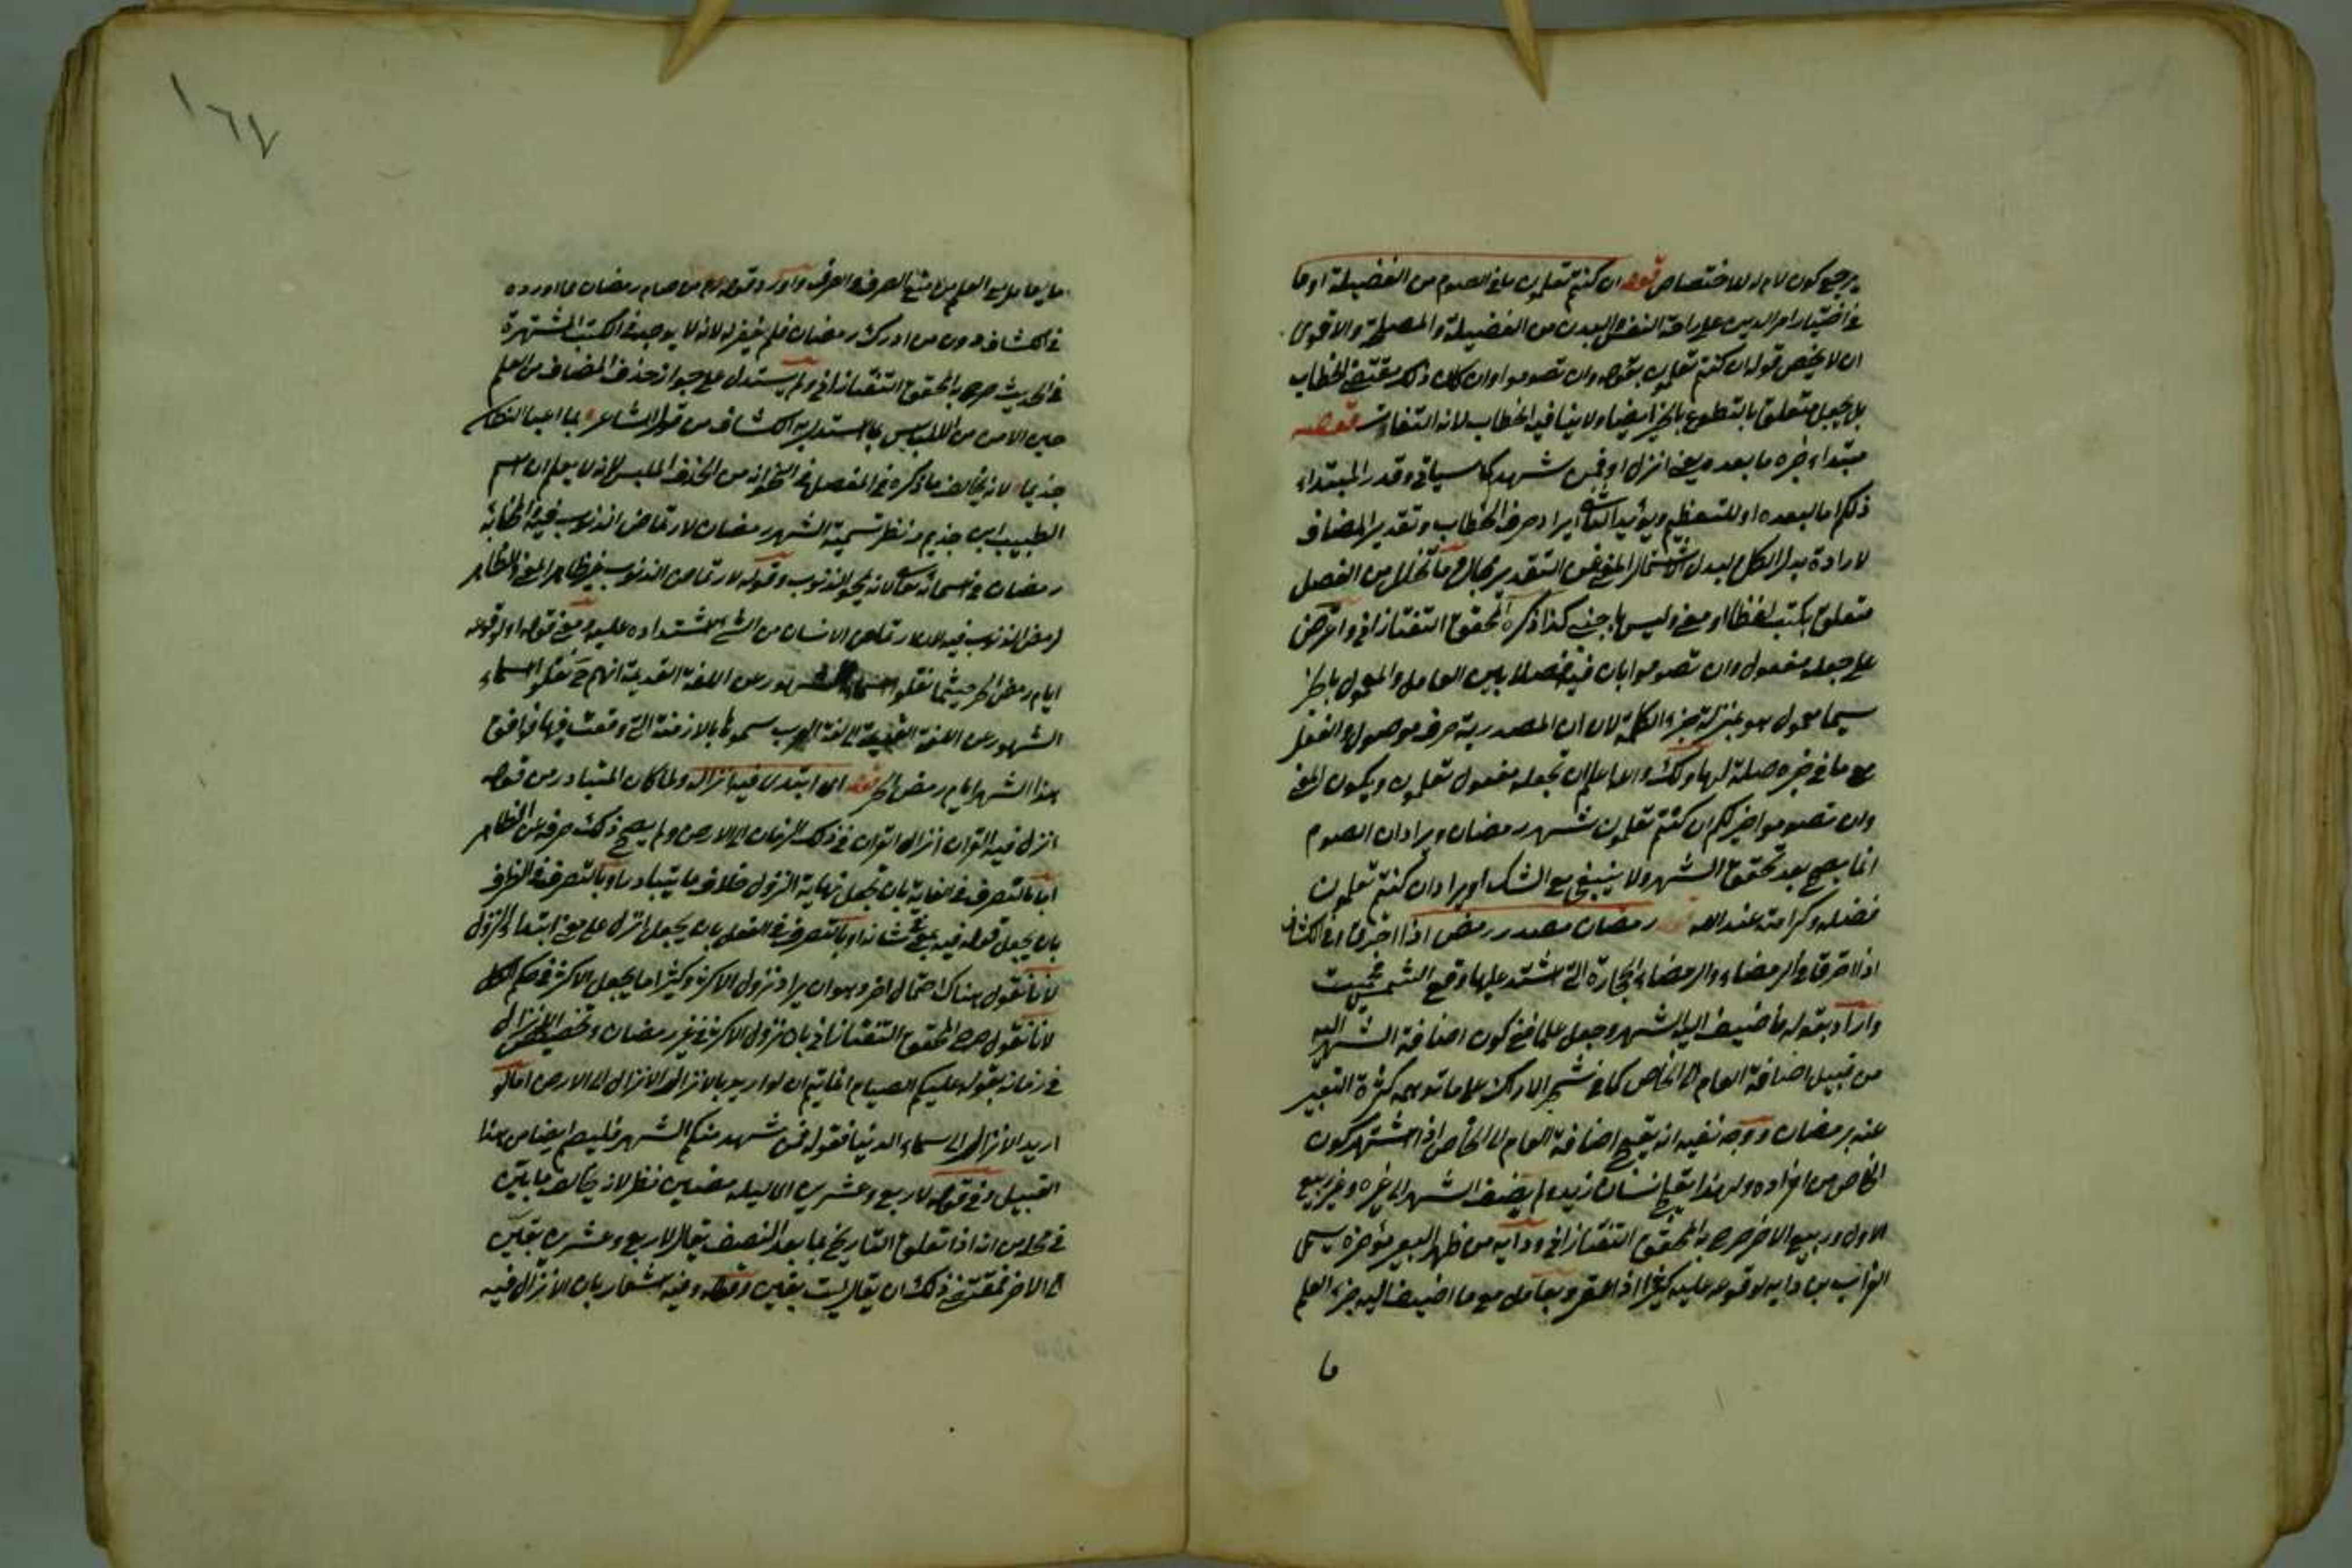 يرجح كون لام له للاختصاص قوله ان كنتم تعلمون ما في الصوم من الفضيلة او ما
في اختيار امر الدين على راحة النفس والبدن من الفضيلة والمصلحة والاقوى
ان لا يخص قوله ان كنتم تعلمون بقوله وان تصوموا وان كان ذلك مقتضى الخطاب
بل يجعل متعلقا بالتطوع بالخير ايضا ولا ينافيه الخطاب لانه التفات قوله
مبتداء خبره ما بعده يعني انزل او فمن شهد كما سياتي وقدر المبتداء
ذلكم اما لبعده او للتعظيم ويؤيد الثاني ايراد حرف الخطاب وتقدير المضاف
لارادة بدل الكل لبدل الاشتمال المغني عن التقدير بحال ما تخلل من الفصل
متعلق بكتب لفظا او معنى وليس باجنبي كذا ذكره المحقق التفتازاني واعترض
على جعله مفعول وان تصوموا بان فيه فصلا بين العامل والمعمول بالخبر
سيما معمول هو بمنزلة جزء الكلمة لان ان المصدرية حرف موصول والفعل
مع ما في خبره صلة لها ولك والله اعلم ان تجعله مفعول تعلمون ويكون المعنى
وان تصوموا خير لكم ان كنتم تعلمون شهر رمضان ويراد ان الصوم
انما يصح بعد تحقق الشهر ولا ينبغي مع الشك او يراد ان كنتم تعلمون
فضله وكرامته عند الله قوله رمضان مصدر رمض اذا احترق في الكشاف
اذا احترق في الرمضاء والرمضاء الحجارة التي اشتد عليها وقع الشمس فحميت
واراد بقوله فاضيف اليه الشهر وجعل علما منع كون اضافة الشهر اليه
من قبيل اضافة العام الى الخاص كما في شجر الاراك على ما توهمه كثرة التعبير
عنه برمضان ووجه نفيه انه يقبح اضافة العام الى الخاص اذا اشتهر كون
الخاص من افراده ولهذا يقبح انسان زيد ولم يضف الشهر الى غيره وغير ربيع
الاول وربيع الاخر صرح به المحقق التفتازاني وداية من ظهر البعير مؤخره يسمى
الغراب بن داية لوقوعه عليه كثيرا اذا عقر ويعامل مع ما اضيف اليه جزء العلم
ما
ما يعامل مع العلم من منع الصرف والصرف واورد قوله من صام رمضان ما اورده
في الكشاف دون من ادرك رمضان فلم يغفر له لانه لا يوجد في الكتب المشتهرة
في الحديث صرح به المحقق التفتازاني ولم يستدل على جواز حذف المضاف من العلم
حين الامن من اللبس بما استدل به الكشاف من قول الشاعر بما اعيا النطاسي
حذيما لانه يخالف ما ذكره في المفصل في النحو انه من الحذف الملبس لانه لا يعلم ان اسم
الطبيب ابن حذيم ونظر تسمية الشهر رمضان لارتماض الذنوب فيه
رمضان في اسمائه تعالى لانه يمحو الذنوب وقوله لارتماض الذنوب غير ظاهر المعنى والظاهر
لرمض الذنوب فيه لان ارتماض الانسان من الشيء اشتداده عليه ومعنى قوله او لوقوعه
ايام رمض الحر حيثما نقلوا اسماء الشهور عن اللغة القديمة انهم حين نقلوا اسماء
الشهور عن اللغة القديمة الى لغة العرب سموها بالازمنة التي وقعت فيها فوافق
هذا الشهر ايام رمض الحر قوله اي ابتدئ فيه انزاله ولما كان المتبادر من قوله
انزل فيه القران انزال القران في ذلك الزمان الى الارض ولم يصح ذلك صرفه عن الظاهر
اما بالتصرف في الغاية بان تجعل نهاية النزول خلاف ما يتبادر او بالتصرف في الظرف
بان يجعل قوله فيه بمعنى في شانه او بالتصرف في الفعل بان يجعل انزل على معنى ابتداء النزول
لانا نقول هناك احتمال اخر وهو ان يراد نزول الاكثر وكثيرا ما يجعل الاكثر في حكم الكل
لانا نقول صرح المحقق التفتازاني بان نزول الاكثر في غير رمضان وتخصيص الانزال
في زمانه بقوله عليكم الصيام انما يتم ان لو اريد بالانزال الانزال الى الارض اما لو
اريد الانزال الى سماء الدنيا فقوله فمن شهد منكم الشهر فليصم ايضا من هذا
القبيل وفي قوله لاربع وعشرين الا ليلة مضين نظر لانه يخالف ما بين
في محله من انه اذا تعلق التاريخ بما بعد النصف يقال لاربع وعشرين بقين
الى الاخر فمقتضى ذلك ان يقال لست بقين وقوله وفيه اشعار بان الانزال فيه
١٦٧